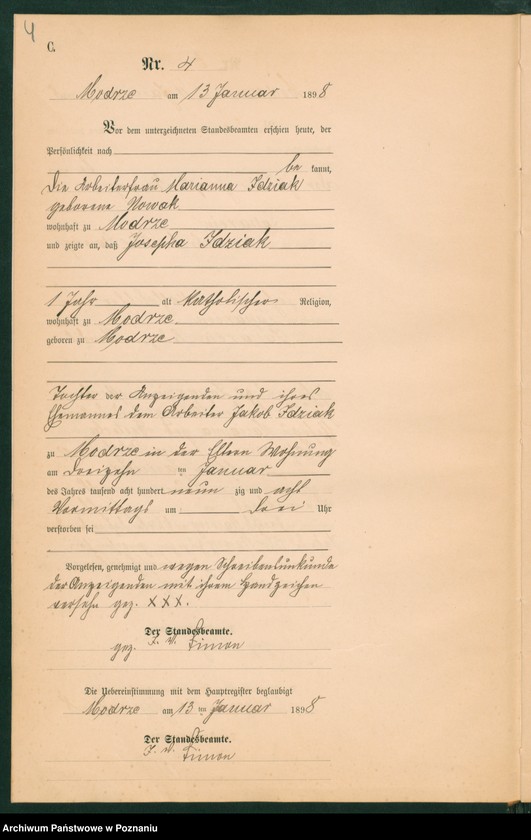 4
C.
Nr. 4
Modrze am 13 Januar 1898
Vor dem unterzeichneten Standesbeamten erschien heute, der
Persönlichkeit nach
be kannt,
Die Arbeiterfrau Marianna Idziak
geborene Nowak
wohnhaft zu Modrze
und zeigte an, daß Josepha Idziak
1 Jahr alt katholischer Religion,
wohnhaft zu Modrze
geboren zu Modrze
Tochter der Anzeigenden und ihres
Ehemannes dem Arbeiter Jakob Idziak
zu Modrze in der Eltern Wohnung
am Dreizehn ten Januar
des Jahres tausend acht hundert neun zig und acht
Vormittags um Drei Uhr
verstorben sei
Vorgelesen, genehmigt und wegen Schreibensunkunde
der Anzeigenden mit ihrem Handzeichen
versehn gez. XXX.
Der Standesbeamte.
gez. I. V. Simon
Die Uebereinstimmung mit dem Hauptregister beglaubigt
Modrze am 13 ten Januar 1898
Der Standesbeamte.
I. V. Simon
Archiwum Państwowe w Poznaniu